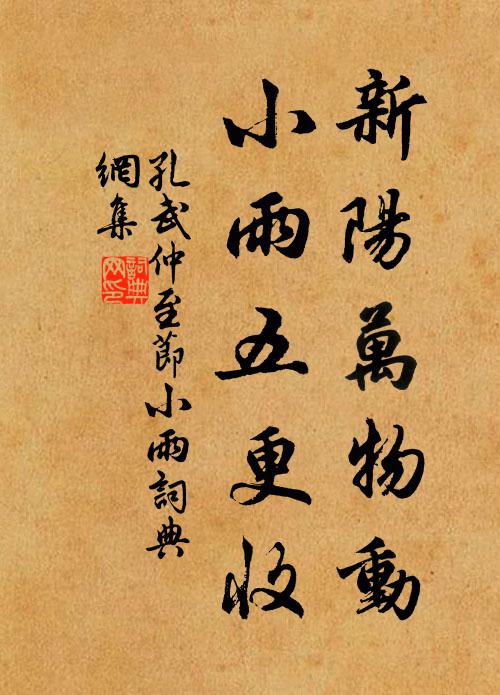 新陽萬物動
小雨五更收
孔武仲至節小雨詞典
網集
詞典
网印